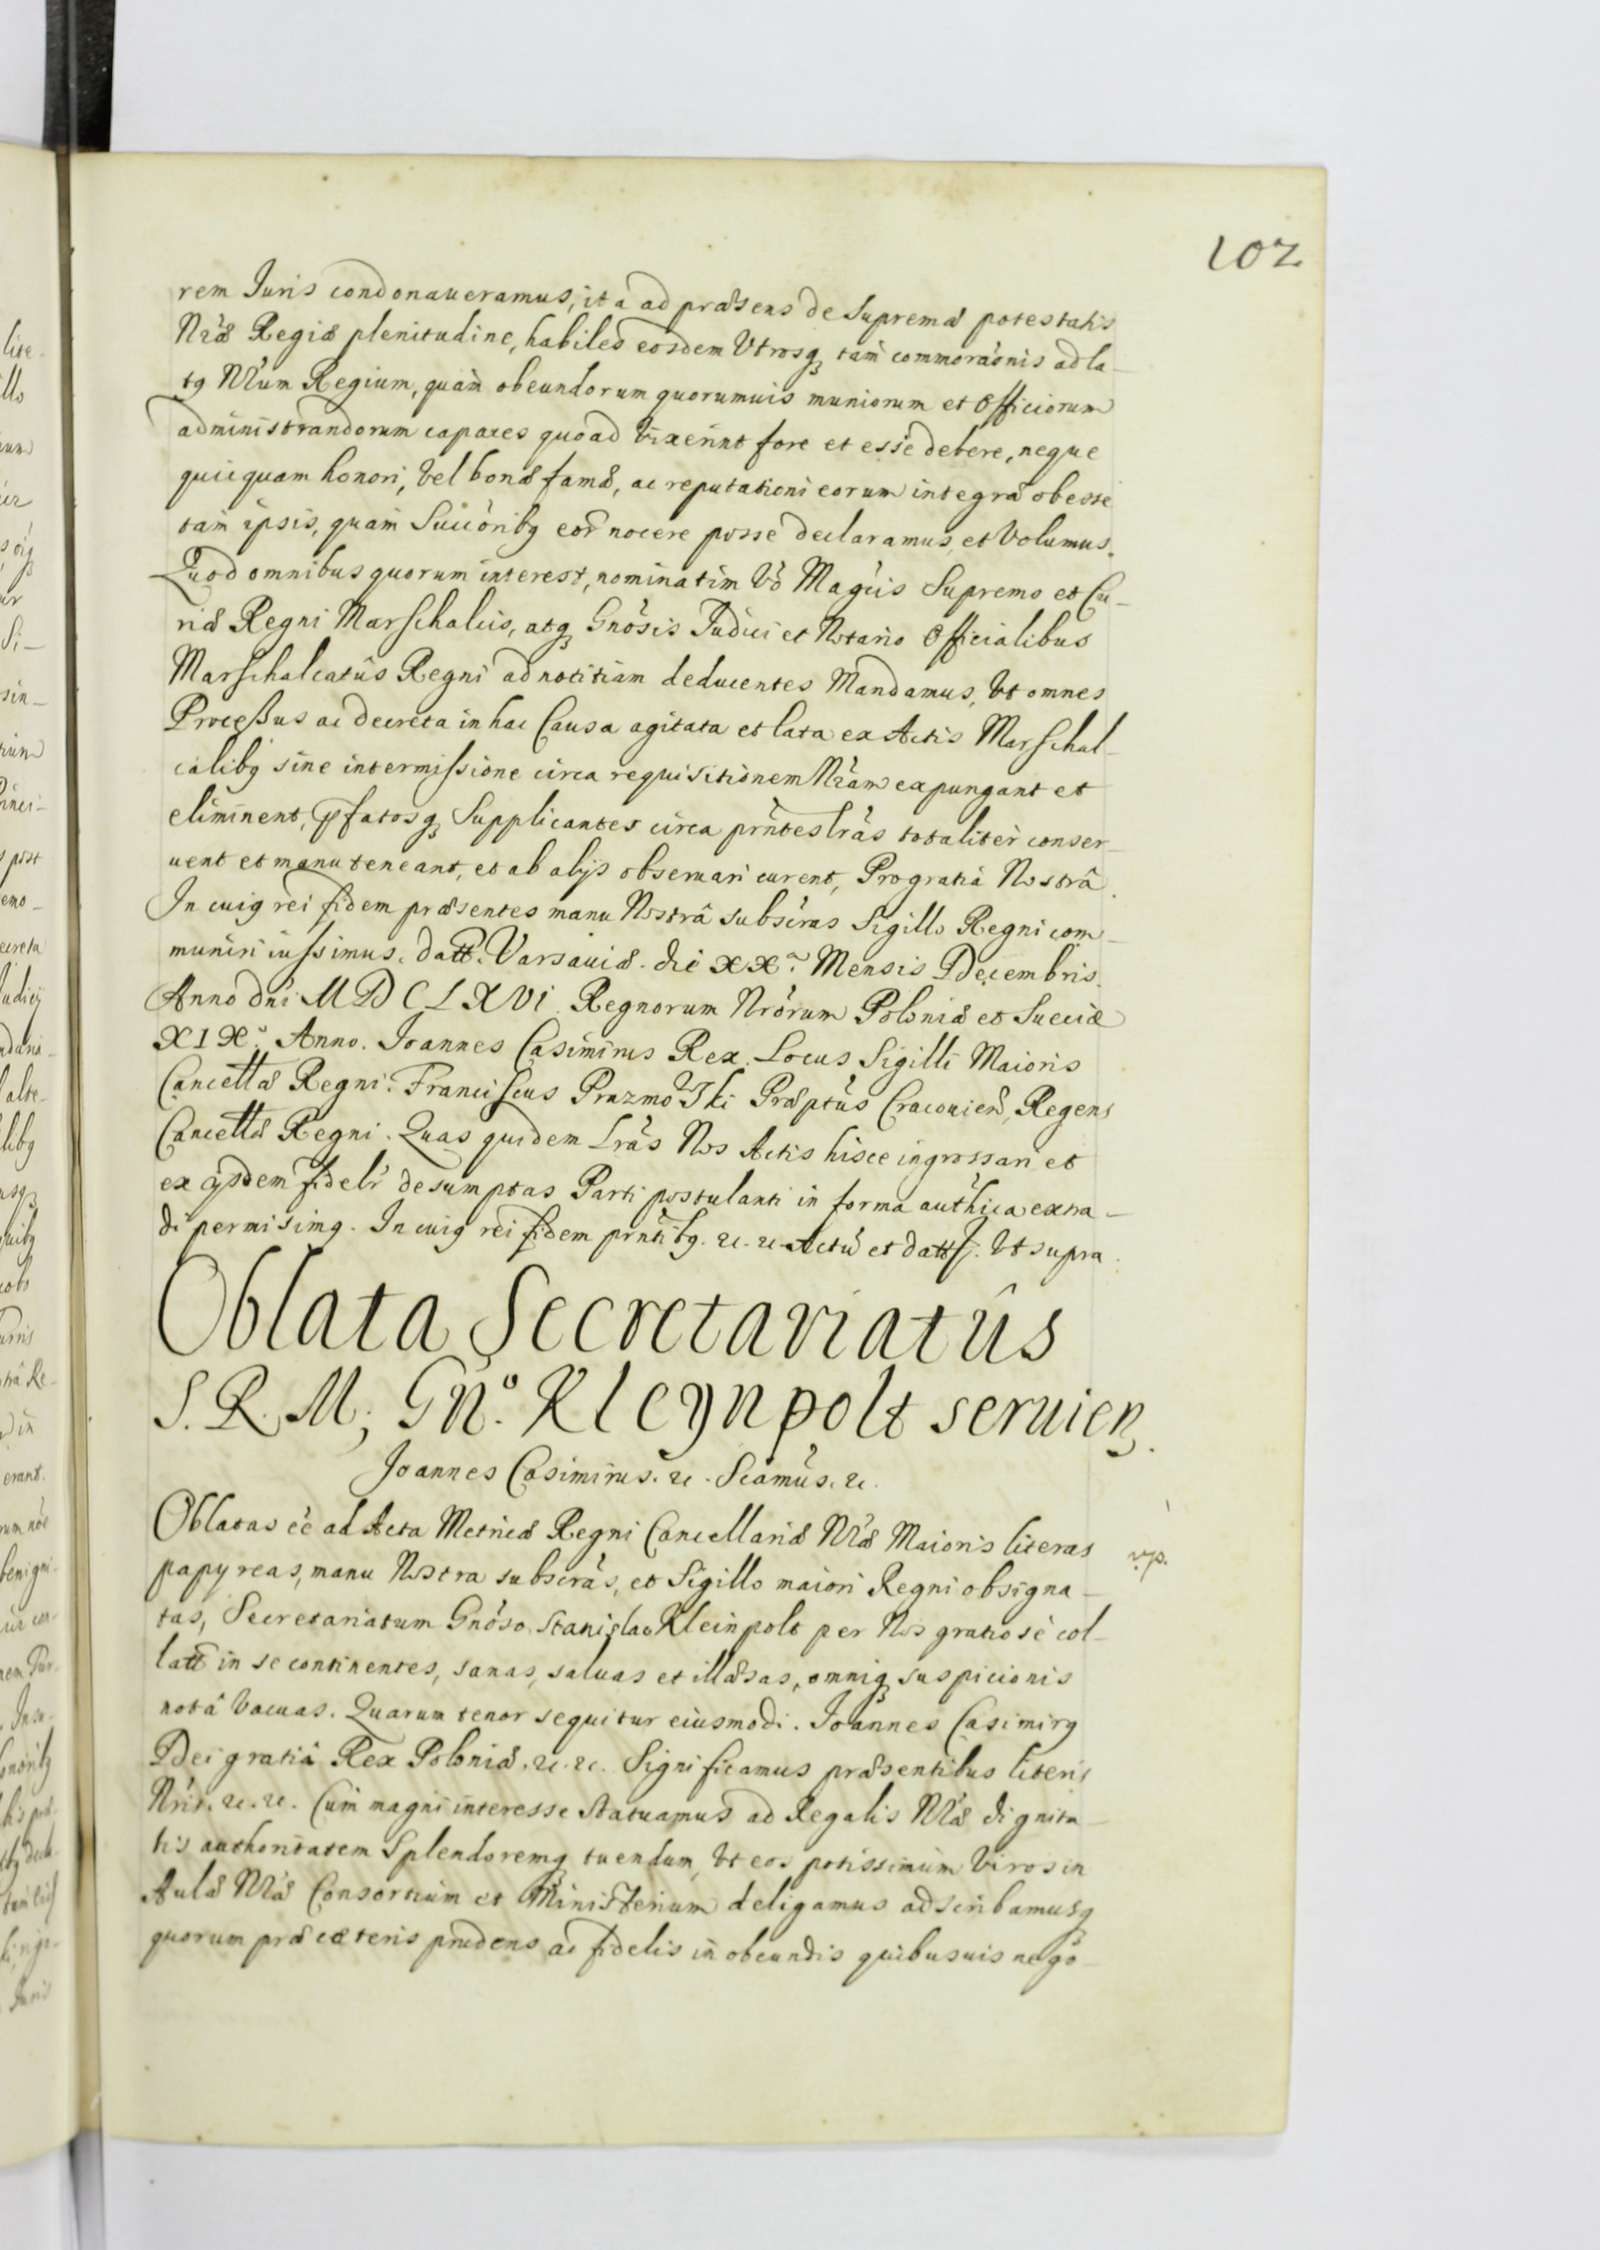 102
rem Juris condonaueramus, ita ad præsens de Suprema potestatis
Nræ Regiæ plenitudine, habiles eosdem Utrosq tam commoraonis ad la-
tq Nrum Regium, quàm obeundorum quorumuis muniorum et Officiorum
administrandorum capaces quoad Vixerint fore et esse debere, neque
quicquam honori, Vel bonæ famæ, ac reputationi eorum integræ obesse
tam ipsis, quàm Succoribq eor nocere posse declaramus, et Volumus.
Quod omnibus quorum interest, nominatim Vo Magcis Supremo et Cu-
riæ Regni Marschalcis, atq Gnosis Judici et Notario Officialibus
Marschalcatûs Regni ad notitiam deducentes Mandamus, Ut omnes
Processus ac decreta in hac Causa agitata et lata ex Actis Marschal-
calibq sine intermissione circa requisitionem Nram expungant et
eliminent, pfatosq Supplicantes circa prntes lras totaliter conser-
uent et manu teneant, et ab alijs obseruari curent, Pro gratiâ Nostrâ.
In cuiq rei fidem præsentes manu Nostrâ subscras Sigillo Regni com-
muniri iussimus. Datt. Varsauiæ. die XXa. Mensis Decembris.
Anno dni MDCLXVI. Regnorum Nrorum Poloniæ et Sueciæ
XIXo. Anno. Joannes Casimirus Rex. Locus Sigilli Maioris
Cancellæ Regni. Franciscus Prazmowski Præptus Cracouien, Regens
Cancellæ Regni. Quas quidem Lras Nos Actis hisce ingrossari et
ex ijsdem fidelr desumptas Parti postulanti in forma authica extra-
di permisimq. In cuiq rei fidem prntibq. &c. &c. Actu et datt. Ut supra.
Oblata Secretariatûs
S. R. M, Gno. Kleynpolt seruien.
Joannes Casimirus. &c. Scamus. &c.
Oblatas ee ad Acta Metricæ Regni Cancellariæ Nræ Maioris literas
papyreas, manu Nostra subscras, et Sigillo maiori Regni obsigna-
tas, Secretariatum Gnoso Stanislao Kleinpolt per Nos gratiosè col-
latt in se continentes, sanas, saluas et illæsas, omniq suspicionis
notâ Vacuas. Quarum tenor sequitur eiusmodi. Joannes Casimirq
Dei gratiâ Rex Poloniæ. &c. &c. Significamus præsentibus literis
Nris. &c. &c. Cùm magni interesse statuamus ad Regalis Nræ dignita-
tis authoritatem Splendoremq tuendum, Ut eos potissimùm Viros in
Aulæ Nræ Consortium et Ministerium deligamus adscribamusq
quorum præ cæteris prudens ac fidelis in obeundis quibusuis nego-